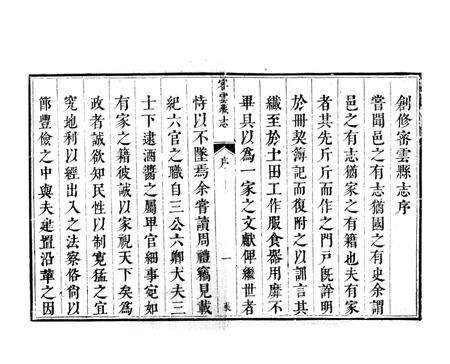 創修密雲縣志序
嘗聞邑之有志猶國之有史余謂
邑之有志猶家之有籍也夫有家
者其先斤斤而作之門戶旣詳明
於冊契簿記而復附之以訓言其
纖至於土田工作服食器用靡不
畢具以爲一家之文獻俾繼世者
恃以不墜焉余嘗讀周禮竊見載
紀六官之職自三公六卿大夫三
士下逮酒醬之屬單官細事宛如
有家之籍彼誠以家視天下矣爲
政者誠欲知民性以制寬猛之宜
究地利以經出入之法察俗尙以
節豐儉之中與夫建置沿革之因
密雲縣志
序
一